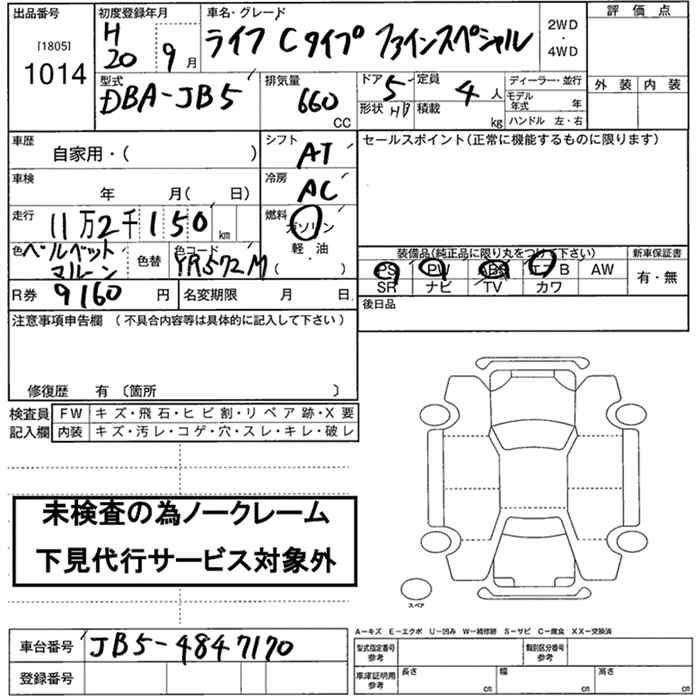 出品番号 初度登録年月 車名・グレード 2WD ・ 4WD 評価点
[1805] 1014 H 20 9月 ライフ Cタイプ ファインスペシャル
型式 排気量 ドア 定員 ディーラー・並行 外装 内装
DBA-JB5 660 CC 5 4人 モデル年式 年
形状 HB 積載 kg ハンドル 左・右
車歴 シフト セールスポイント(正常に機能するものに限ります)
自家用・( ) AT
車検 冷房
年 月( 日) AC
走行 燃料
11万2千150km ガソリン
色 色替 色コード 軽・油
ベルベットマルーン YR572M ( )
装備品(純正品に限り丸をつけて下さい) 新車保証書
PS PW ABS エアB AW 有・無
SR ナビ TV カワ
R券 9160円 名変期限 月 日
後日品
注意事項申告欄 (不具合内容等は具体的に記入して下さい)
修復歴 有 〔箇所 〕
検査員 FW キズ・飛石・ヒビ割・リペア跡・X要
記入欄 内装 キズ・汚レ・コゲ・穴・スレ・キレ・破レ
未検査の為ノークレーム
下見代行サービス対象外
スペア
A-キズ E-エクボ U-凹み W-補修跡 S-サビ C-腐食 XX-交換済
車台番号 JB5-4847170
型式指定番号 参考 類別区分番号 参考
登録番号
車庫証明用 参考 長さ cm 幅 cm 高さ cm